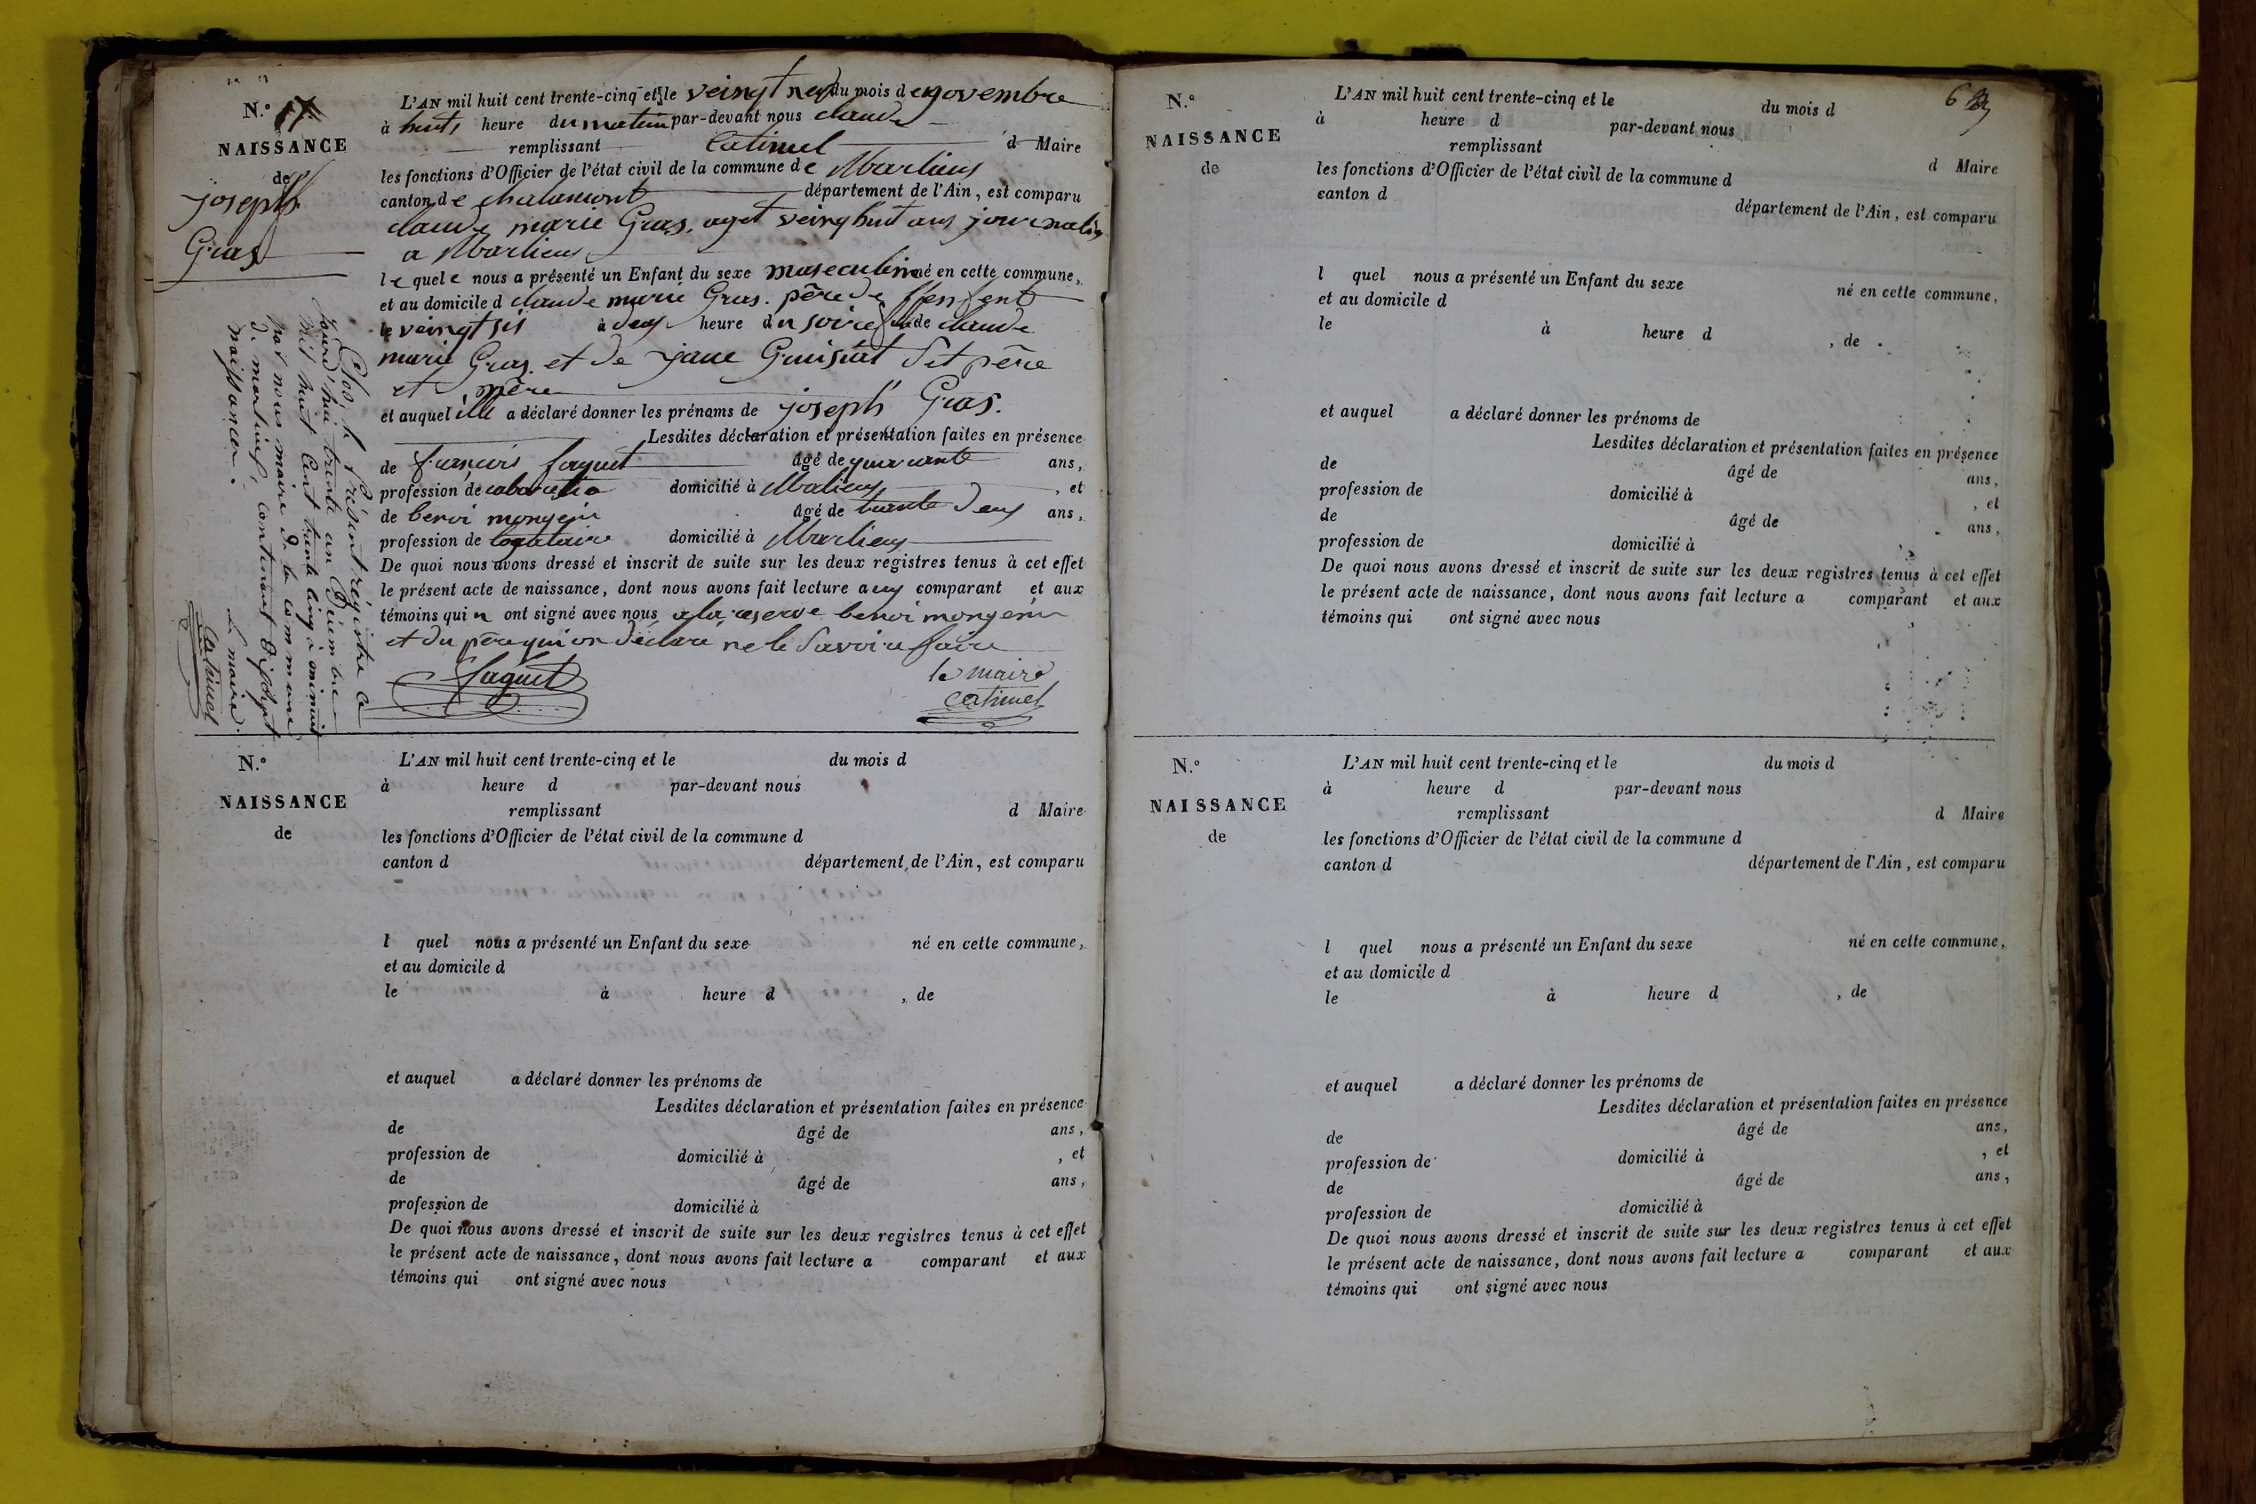 N.° 17
NAISSANCE
de
joseph
Gras
L'AN mil huit cent trente-cinq et le veingt neuf du mois d e novembre
à huit heure du matin par-devant nous claude
remplissant Catimel d Maire
les fonctions d'Officier de l'état civil de la commune de Marlieux
canton de chalamont département de l'Ain, est comparu
claude marie Gras. aget veinghuit ans journalier
a Marlieux
le quele nous a présenté un Enfant du sexe masecculin né en cette commune,
et au domicile d claude marie Gras. père de
le veingt sis à deux heure du soire de claude
marie Gras. et de jane Guisiat set père
et mère
et auquel ille a déclaré donner les prénoms de joseph Gras.
Lesdites déclaration et présentation faites en présence
de francois faguet âgé de quarante ans,
profession de domicilié à Malieux, et
de benoi mongein âgé de trante deux ans,
profession de domicilié à Marlieux
De quoi nous avons dressé et inscrit de suite sur les deux registres tenus à cet effet
le présent acte de naissance, dont nous avons fait lecture aux comparant et aux
témoins qui n ont signé avec nous a la reserve benoi mongein
et du père qui on déclaré ne le savoire faire
faguet
le maire
Catimel
Clos le présent régistre a
jourd'hui trente un Décembre
mil huit cent trente cinq à minuit
par nous maire de la commune
de marlieux, contenant dix sept
naissances.
le maire.
Catimel
N.°
NAISSANCE
de
L'AN mil huit cent trente-cinq et le du mois d
à heure d par-devant nous
remplissant d Maire
les fonctions d'Officier de l'état civil de la commune d
canton d département de l'Ain, est comparu
l quel nous a présenté un Enfant du sexe né en cette commune,
et au domicile d
le à heure d , de
et auquel a déclaré donner les prénoms de
Lesdites déclaration et présentation faites en présence
de âgé de ans,
profession de domicilié à , et
de âgé de ans,
profession de domicilié à
De quoi nous avons dressé et inscrit de suite sur les deux registres tenus à cet effet
le présent acte de naissance, dont nous avons fait lecture a comparant et aux
témoins qui ont signé avec nous
6
N.°
NAISSANCE
de
L'AN mil huit cent trente-cinq et le du mois d
à heure d par-devant nous
remplissant d Maire
les fonctions d'Officier de l'état civil de la commune d
canton d département de l'Ain, est comparu
l quel nous a présenté un Enfant du sexe né en cette commune,
et au domicile d
le à heure d , de
et auquel a déclaré donner les prénoms de
Lesdites déclaration et présentation faites en présence
de âgé de ans,
profession de domicilié à , et
de âgé de ans,
profession de domicilié à
De quoi nous avons dressé et inscrit de suite sur les deux registres tenus à cet effet
le présent acte de naissance, dont nous avons fait lecture a comparant et aux
témoins qui ont signé avec nous
N.°
NAISSANCE
de
L'AN mil huit cent trente-cinq et le du mois d
à heure d par-devant nous
remplissant d Maire
les fonctions d'Officier de l'état civil de la commune d
canton d département de l'Ain, est comparu
l quel nous a présenté un Enfant du sexe né en cette commune,
et au domicile d
le à heure d , de
et auquel a déclaré donner les prénoms de
Lesdites déclaration et présentation faites en présence
de âgé de ans,
profession de domicilié à , et
de âgé de ans,
profession de domicilié à
De quoi nous avons dressé et inscrit de suite sur les deux registres tenus à cet effet
le présent acte de naissance, dont nous avons fait lecture a comparant et aux
témoins qui ont signé avec nous